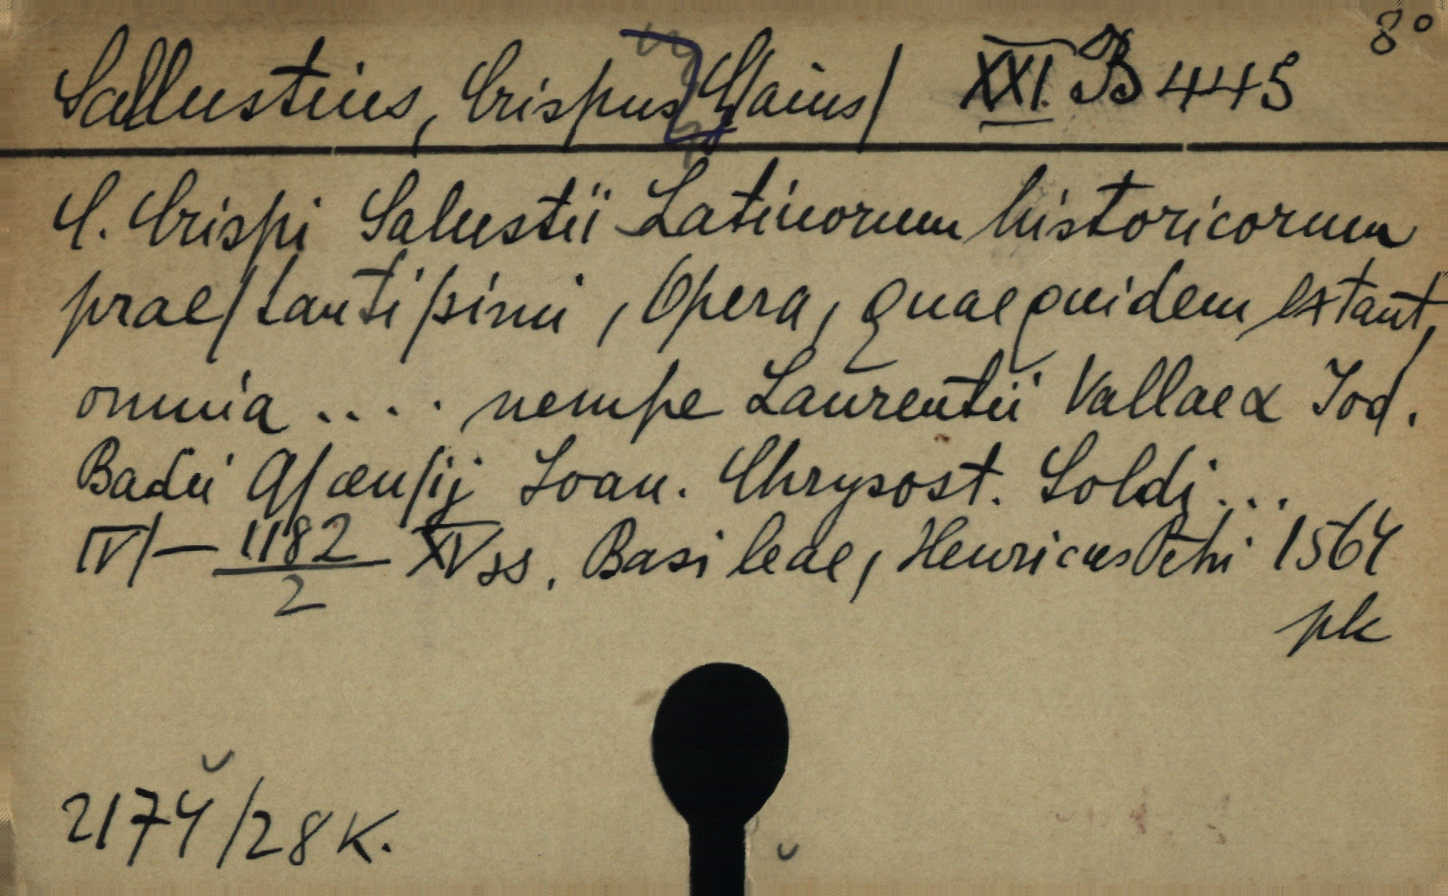 8°
Sallustius, Crispus C/aius/ XXI. B 445
C. Crispi Salustii Latinorum historicorum
prae/tanti/simi, Opera, quae quidem extant,
omnia .... nempe Laurentii Vallae & Iod.
Badii A/cen/ij Ioan. Chrysost. Soldi...
IV/— 1182/2 XVss. Basileae, Henricus Petri 1564
pk
2174/28 K.